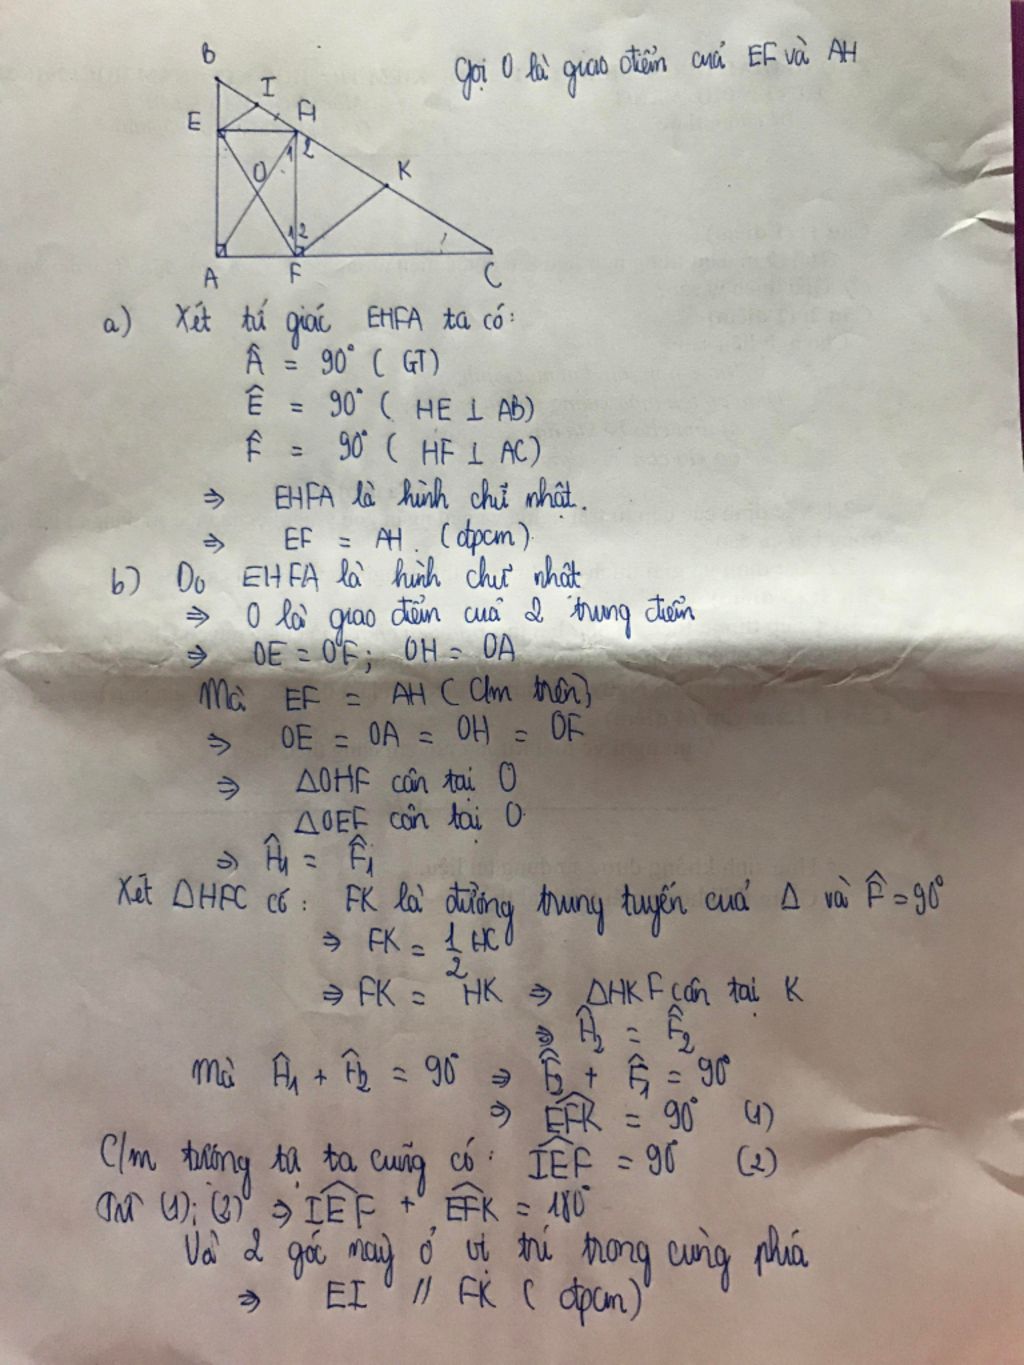 Gọi O là giao điểm của EF và AH
B
I
E
H
1 2
K
O
1 2
A
F
C
a) Xét tứ giác EHFA ta có:
Â = 90° ( GT)
Ê = 90° ( HE ⊥ AB)
F̂ = 90° ( HF ⊥ AC)
⇒ EHFA là hình chữ nhật.
⇒ EF = AH. (đpcm).
b) Do EHFA là hình chữ nhật
⇒ O là giao điểm của 2 trung điểm
⇒ OE = OF; OH = OA
Mà EF = AH ( C/m trên)
⇒ OE = OA = OH = OF
⇒ ΔOHF cân tại O
ΔOEF cân tại O
⇒ Ĥ₁ = F̂₁
Xét ΔHFC có: FK là đường trung tuyến của Δ và F̂ = 90°
⇒ FK = 1/2 HC
⇒ FK = HK ⇒ ΔHKF cân tại K
⇒ Ĥ₂ = F̂₂
Mà Ĥ₁ + Ĥ₂ = 90° ⇒ F̂₂ + F̂₁ = 90°
⇒ EFK̂ = 90° (1)
C/m tương tự ta cũng có: IEF̂ = 90° (2)
Từ (1); (2) ⇒ IEF̂ + EFK̂ = 180°
Và 2 góc này ở vị trí trong cùng phía
⇒ EI // FK ( đpcm)